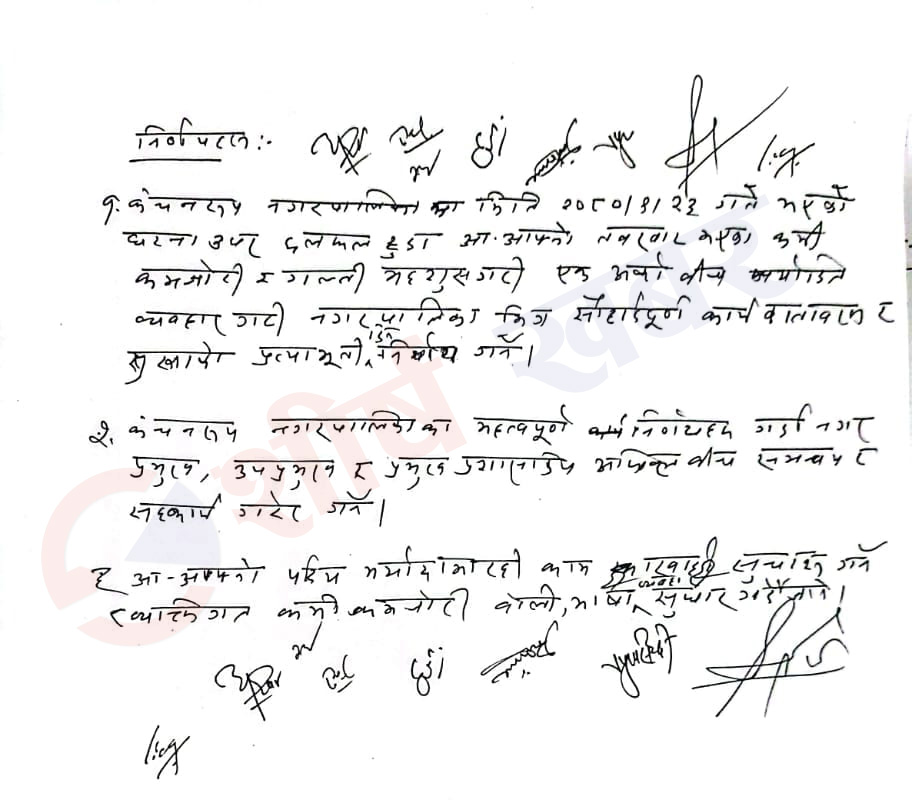 निर्णयहरू :-
१. कंचनरूप नगरपालिकाका मिति २०८०।३।२३ गते भएको
घटना उपर छलफल हुदा आ-आफ्नो तर्फबाट भएका कमी
कमजोरी र गल्ती महशुस गरी एक अर्का बीच मर्यादित
व्यवहार गरी नगरपालिका भित्र सौहार्दपूर्ण कार्य वातावरण र
सुरक्षाको प्रत्याभूती दिने निर्णय गर्ने।
२. कंचनरूप नगरपालिकाका महत्वपूर्ण निर्णयहरू गर्दा नगर
प्रमुख, उपप्रमुख र प्रमुख प्रशासकीय अधिकृत बीच समन्वय र
सहकार्य गरेर गर्ने।
३ आ-आफ्नो पदिय मर्यादामा रही काम कारवाही सुचारु गर्ने
र व्यक्तिगत कमी कमजोरी बोली, भाषा, व्यवहार सुधार गर्दै जाने।
शीर्ष खबर